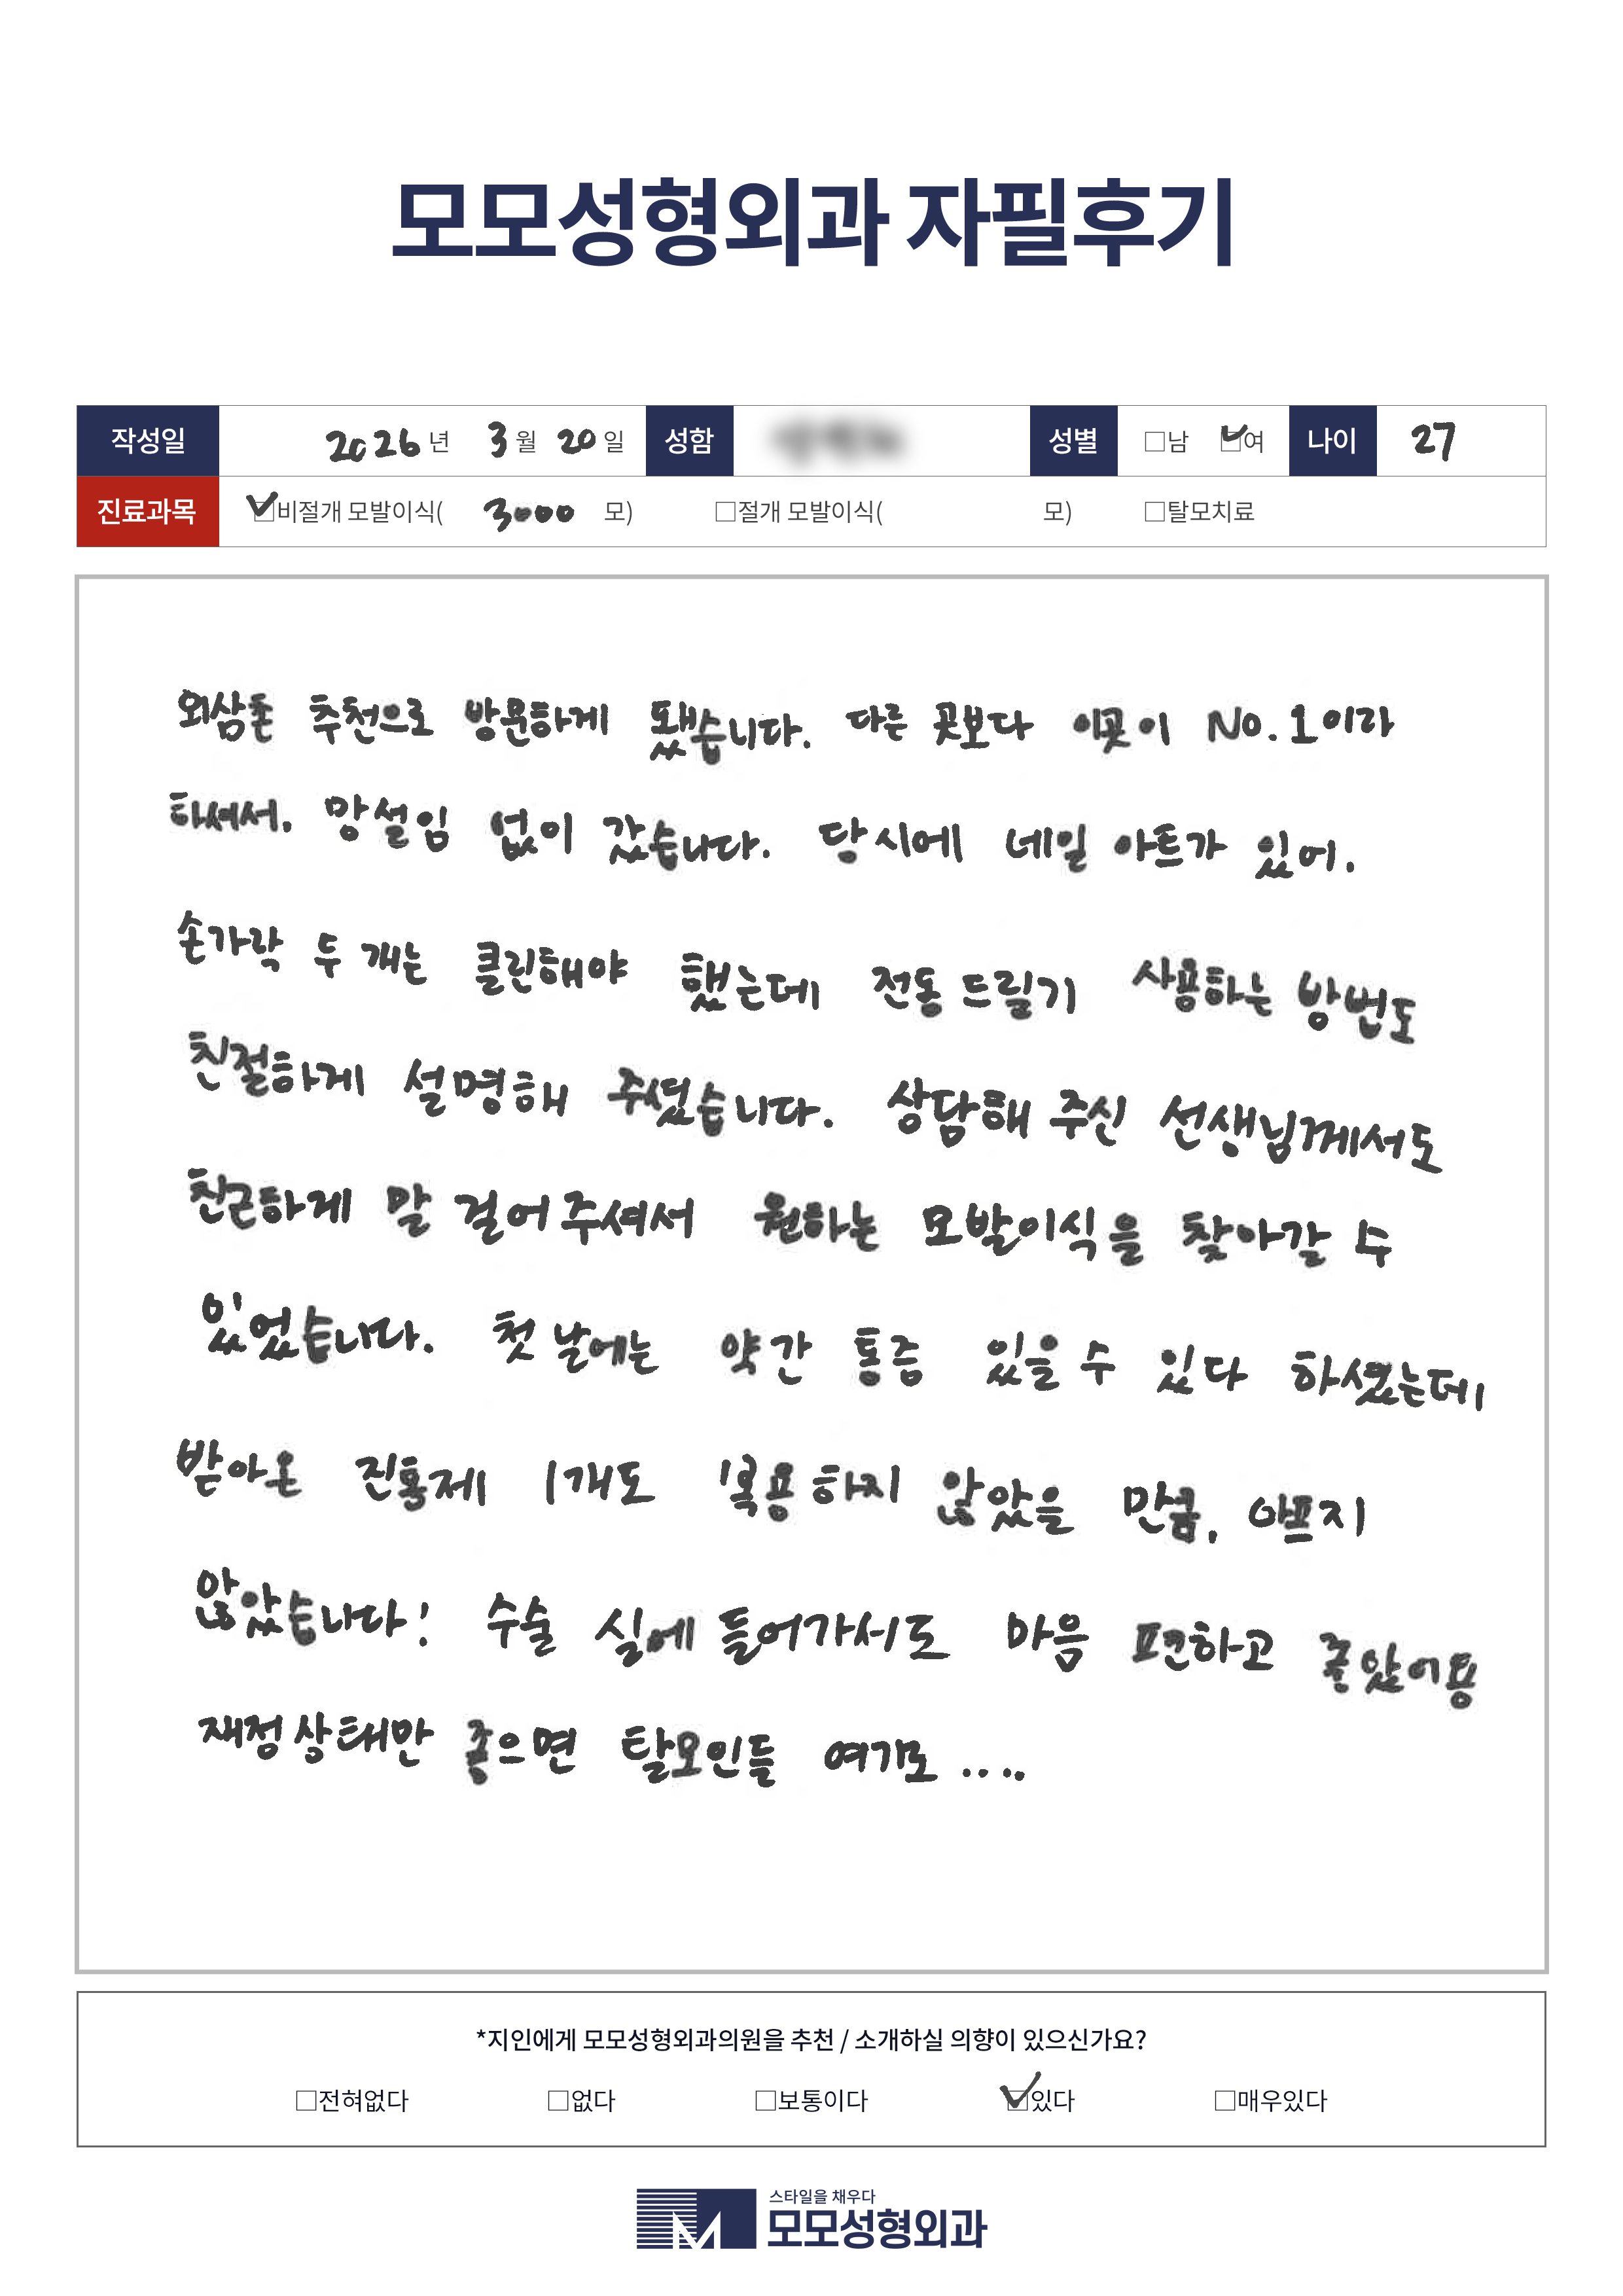 모모성형외과 자필후기
작성일 2026년 3월 20일 성함 성별 □남 ☑여 나이 27
진료과목 ☑비절개 모발이식( 3000 모) □절개 모발이식( 모) □탈모치료
외삼촌 추천으로 방문하게 됐습니다. 다른 곳보다 이곳이 No.1이라
하셔서. 망설임 없이 갔습니다. 당시에 네일 아트가 있어.
손가락 두 개는 클린해야 했는데 전동 드릴기 사용하는 방법도
친절하게 설명해 주셨습니다. 상담해 주신 선생님께서도
친근하게 말 걸어 주셔서 원하는 모발이식을 찾아갈 수
있었습니다. 첫 날에는 약간 통증 있을 수 있다 하셨는데
받아온 진통제 1개도 복용하지 않았을 만큼, 아프지
않았습니다! 수술 실에 들어가서도 마음 편하고 좋았어용
재정상태만 좋으면 탈모인들 여기로 ....
*지인에게 모모성형외과의원을 추천 / 소개하실 의향이 있으신가요?
□전혀없다 □없다 □보통이다 ☑있다 □매우있다
스타일을 채우다
모모성형외과